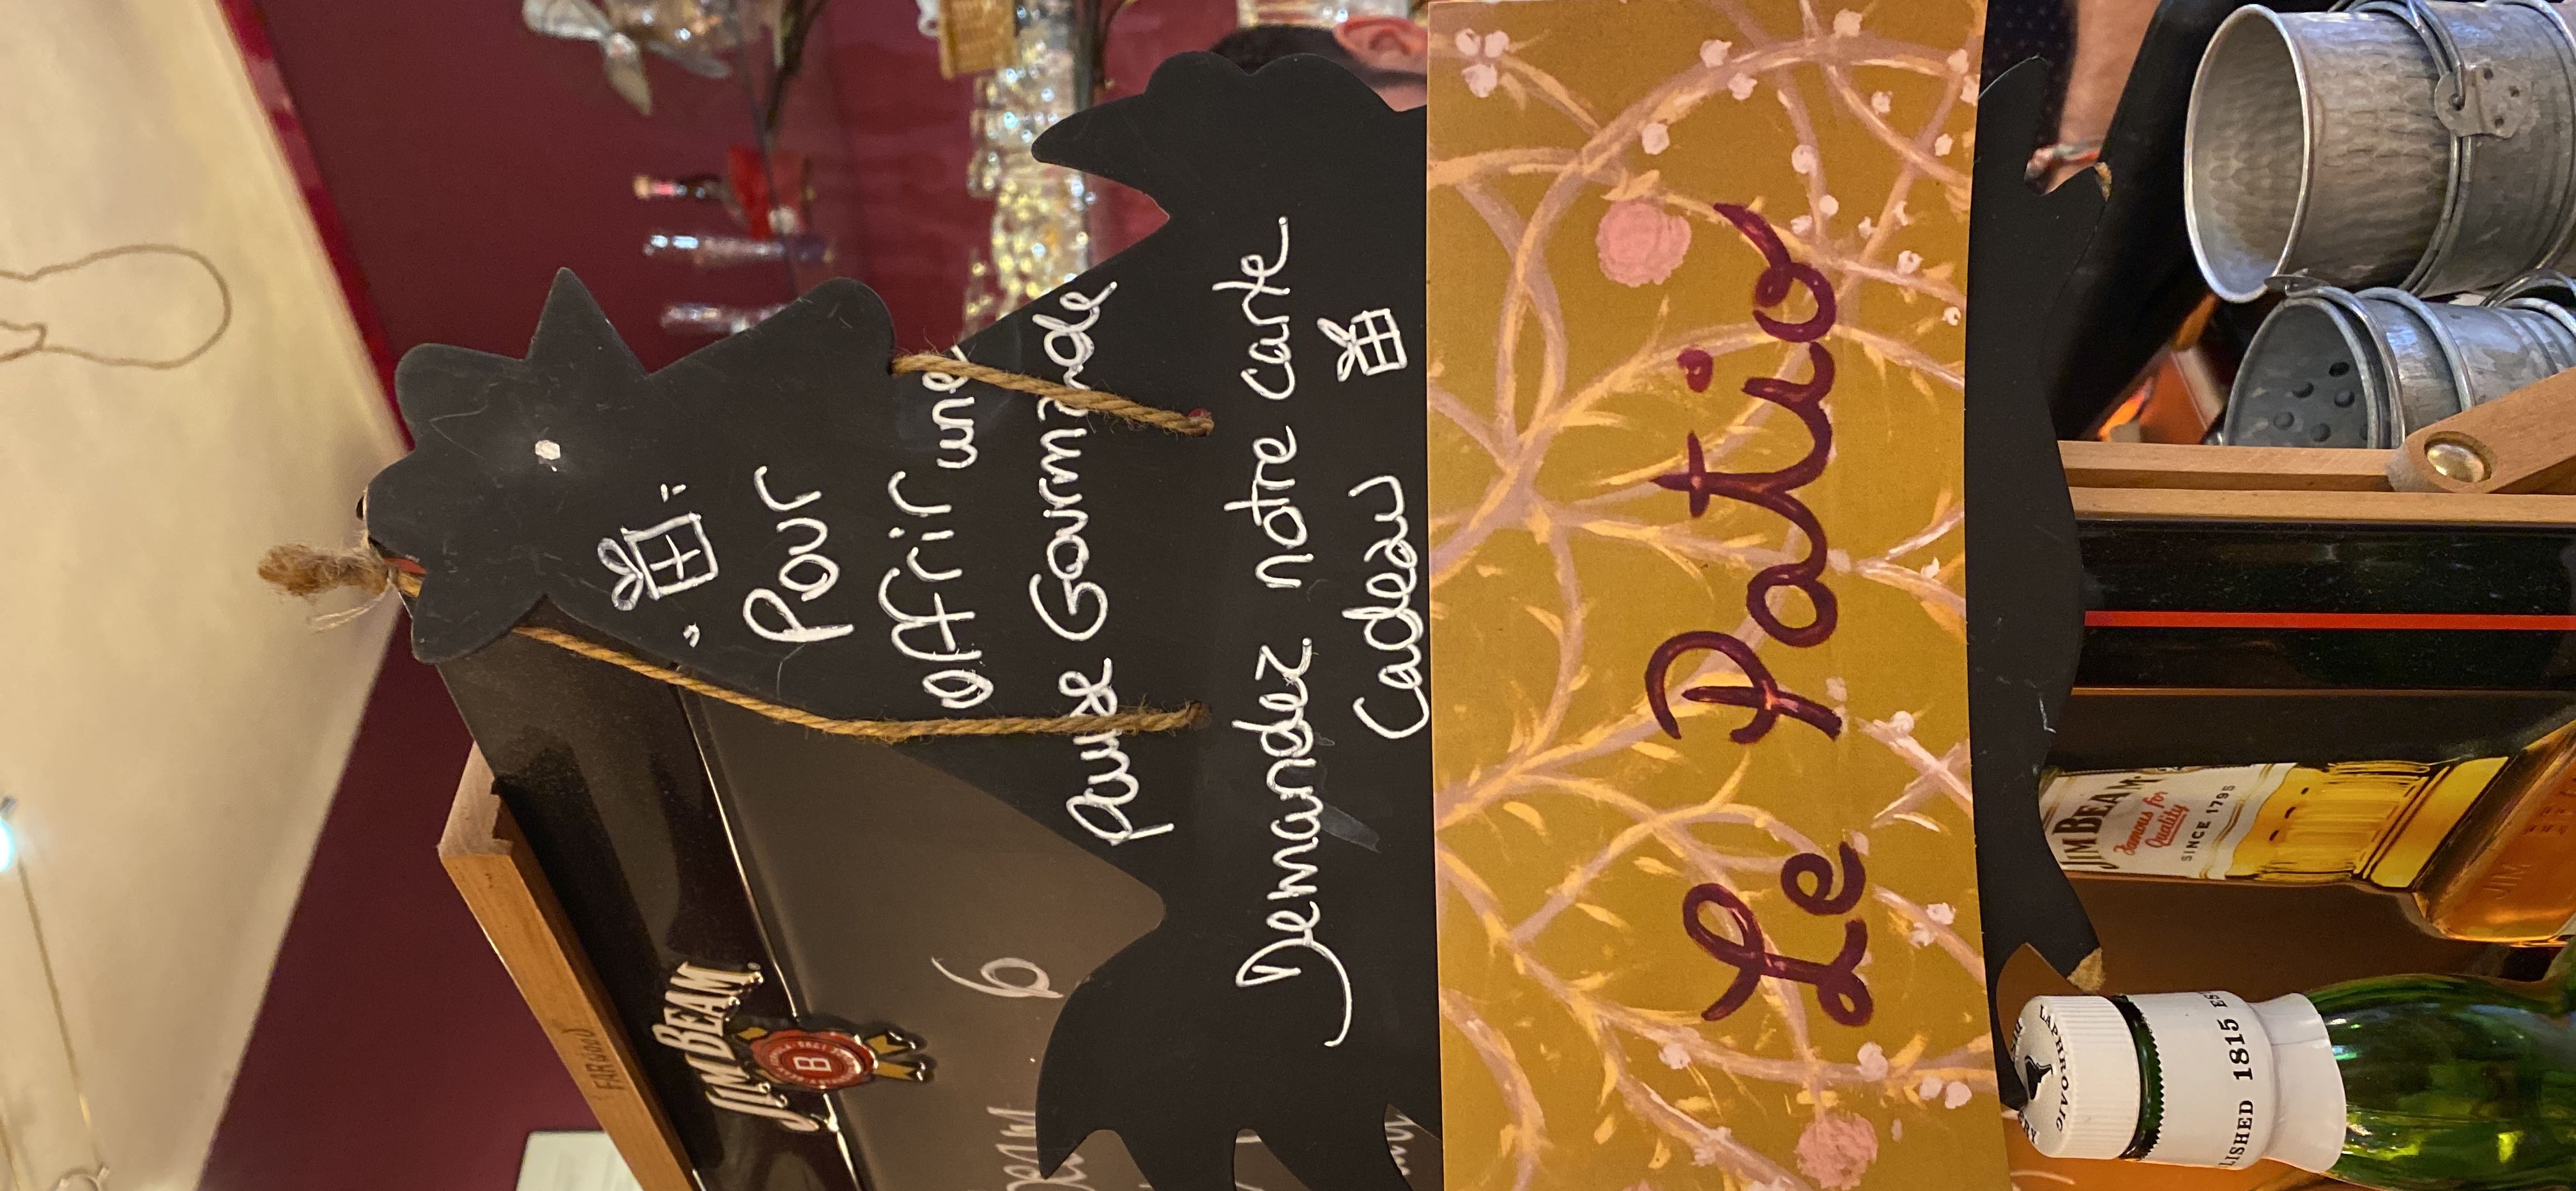 Pour
offrir une
pause Gourmande
Demandez notre carte
Cadeau
Le Patio
JIM BEAM
B
6
JIM BEAM
Famous for
Quality
SINCE 1795
LAPHROAIG
LISHED 1815 ES